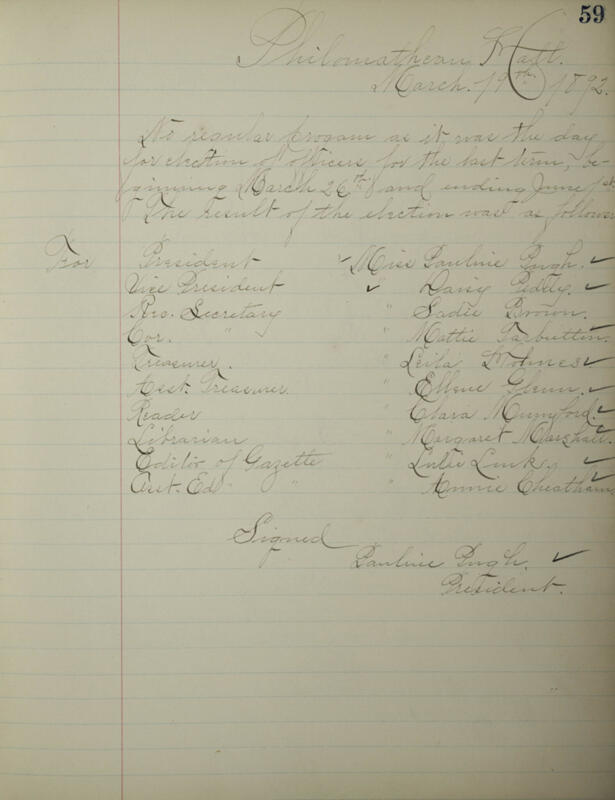 59
Philomathean Hall.
March. 19th 1892.
No regular progam as it was the day
for election of officers for the last term, be-
ginning March 26th and ending June 1st.
The result of the election was as follows
For President ✓ Miss Pauline Pugh. ✓
Vice President ✓ Daisy ✓
Rec. Secretary " Sadie Brown.
Cor. " " Mattie Tarbutton.
Treasurer. " Leila Holmes ✓
Asst. Treasurer " Ellene Glenn. ✓
Reader " Clara Mumford. ✓
Librarian " Margaret Marshall. ✓
Editor of Gazette " Lutie Link. ✓
Asst. Ed. " " Annie Cheatham ✓
Signed
Pauline Pugh. ✓
President.